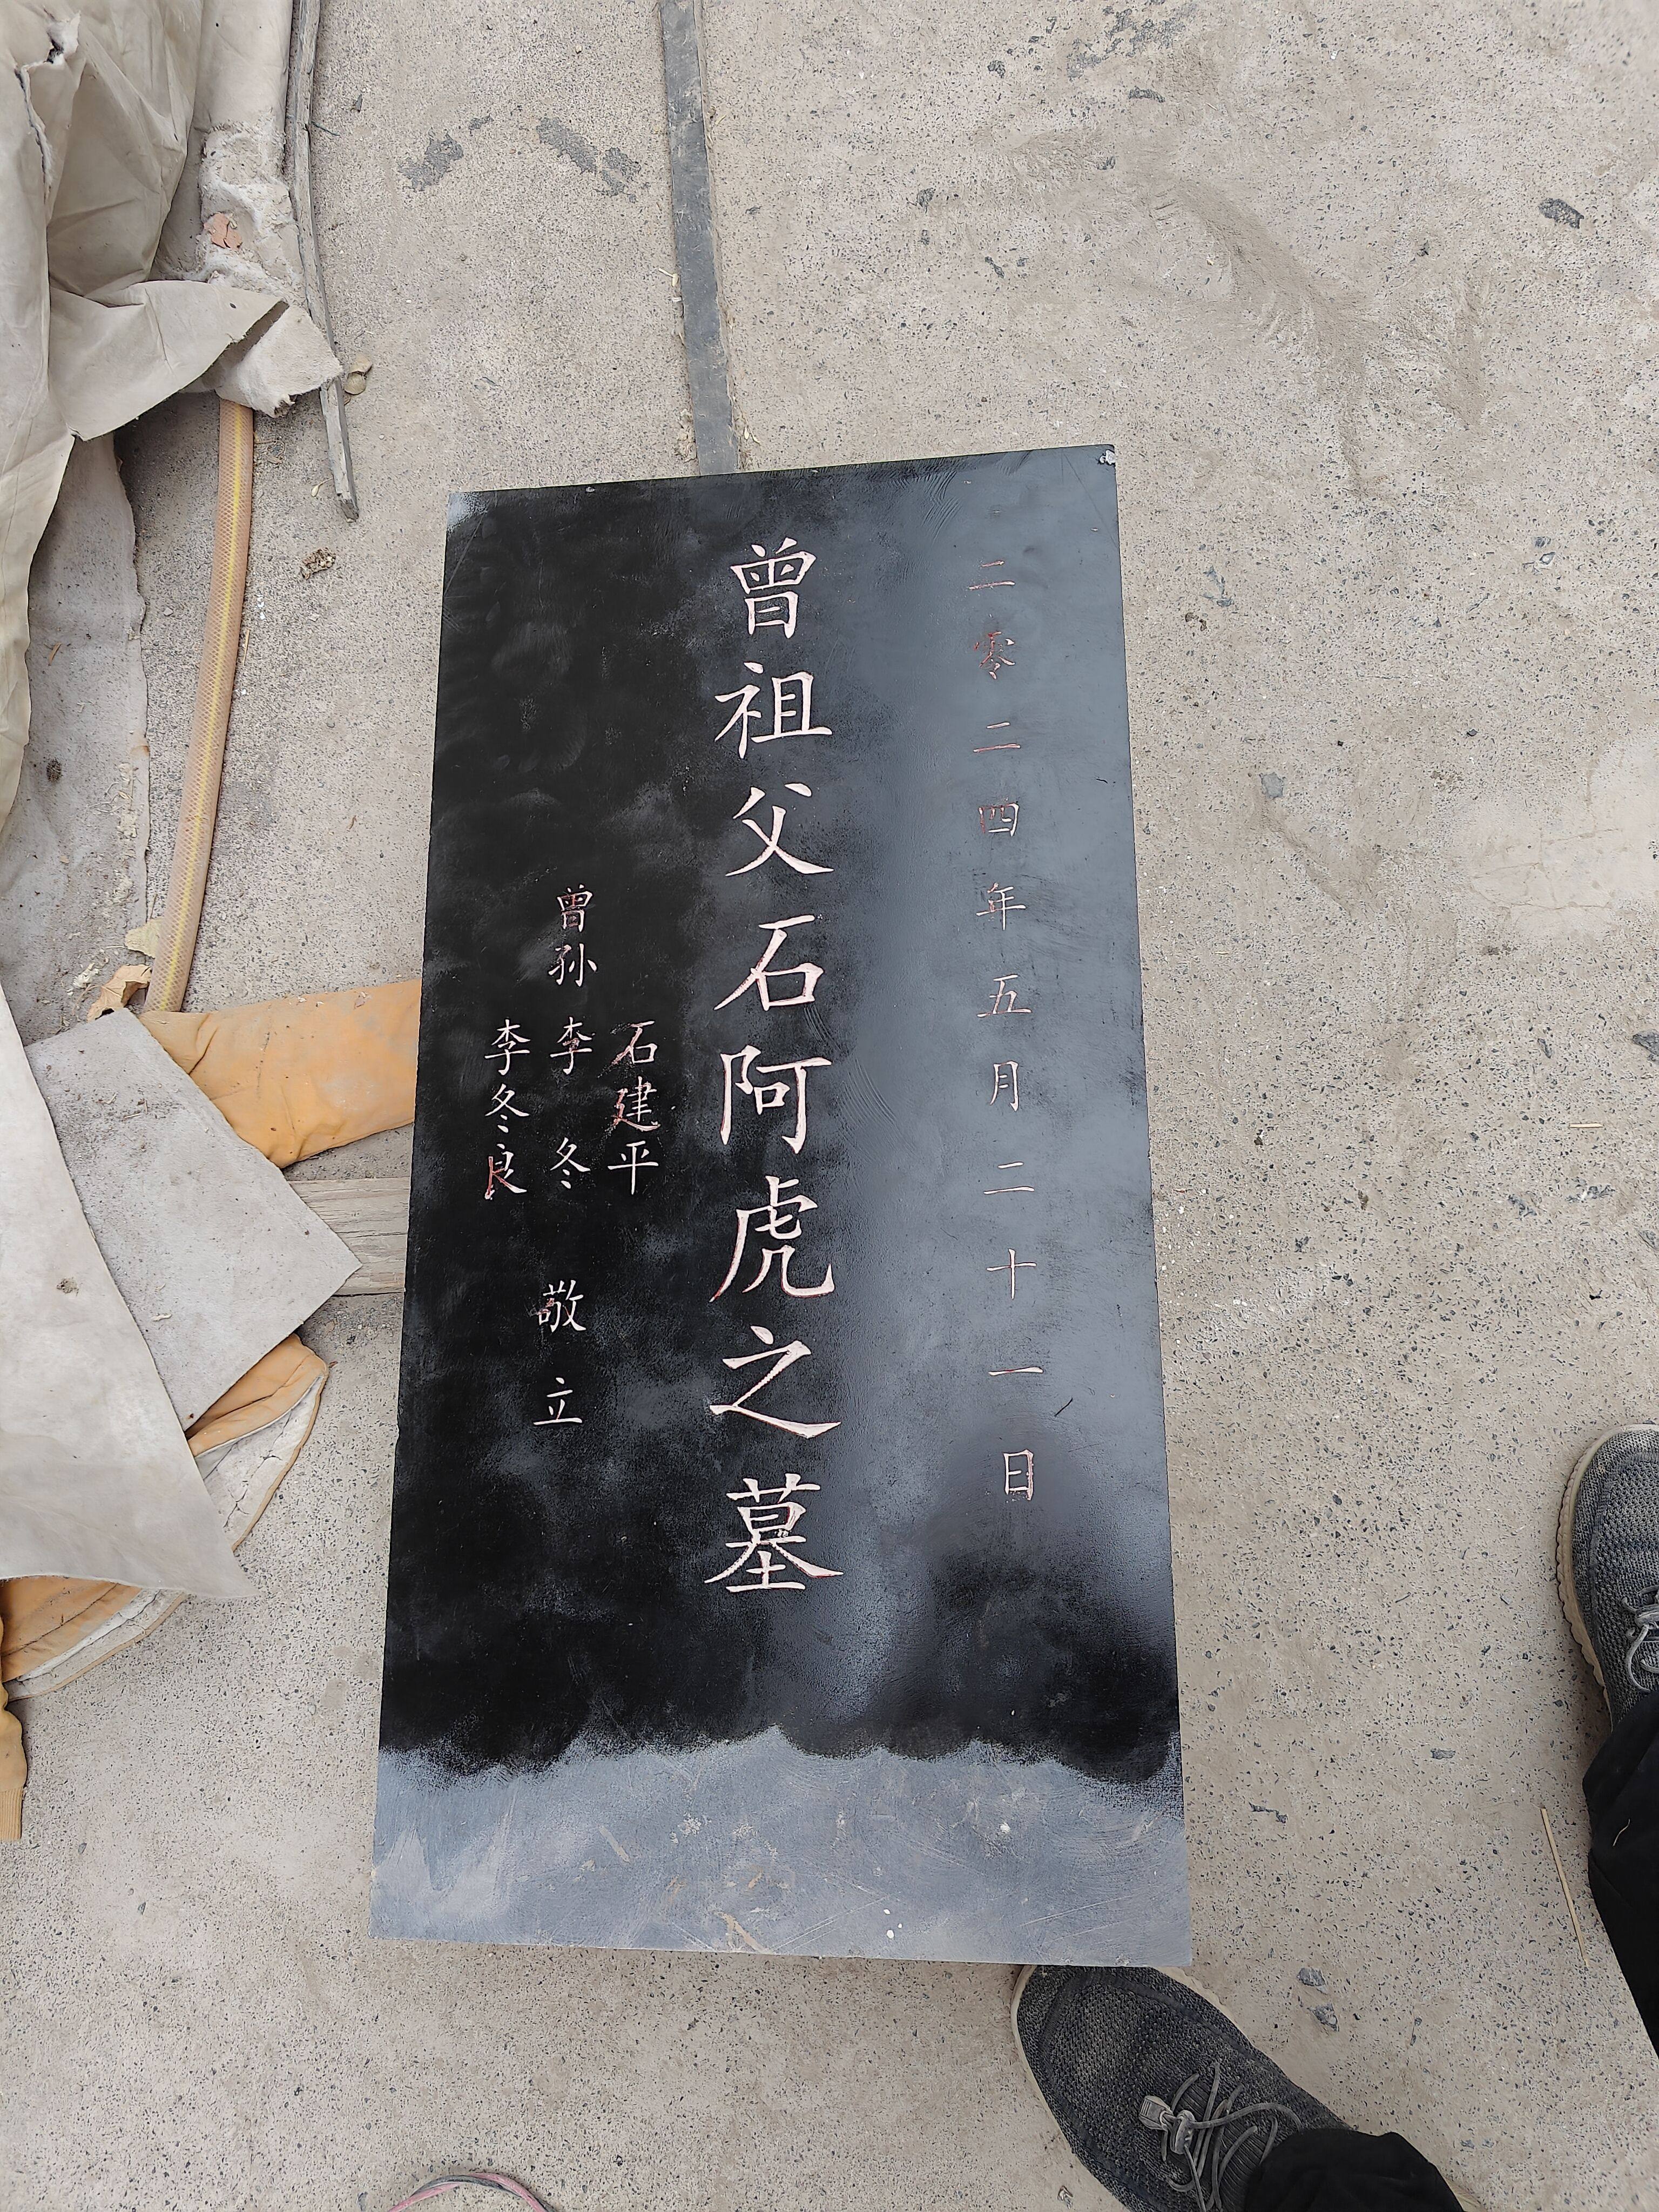 二零二四年五月二十一日
曾祖父石阿虎之墓
石建平
曾孙李冬敬立
李冬良